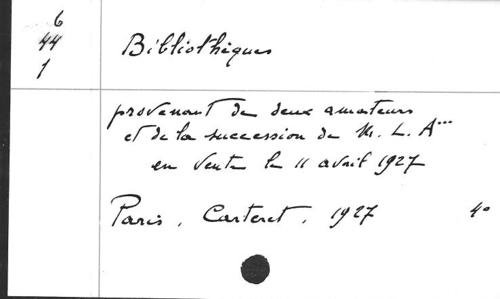 6
44
1
Bibliothèques
provenant de deux amateurs
et de la succession de M. L. A***
en vente le 11 avril 1927
Paris, Carteret, 1927 4°